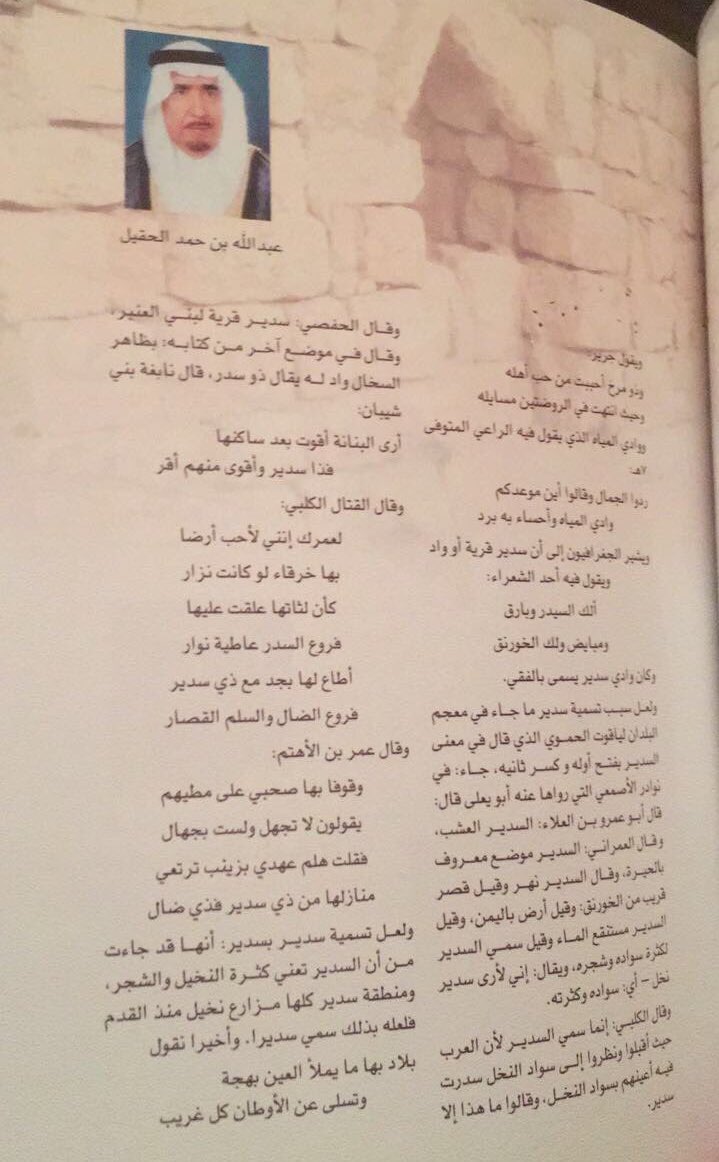 عبدالله بن حمد الحقيل
ويقول جرير:
وذو مرخ أحببت من حب أهله
وحيث انتهت في الروضتين مسايله
ووادي المياه الذي يقول فيه الراعي المتوفى
٧هـ:
ردوا الجمال وقالوا أين موعدكم
وادي المياه وأحساء به برد
ويشير الجغرافيون إلى أن سدير قرية أو واد
ويقول فيه أحد الشعراء:
ألك السيدر وبارق
ومبايض ولك الخورنق
وكان وادي سدير يسمى بالفقي.
ولعل سبب تسمية سدير ما جاء في معجم
البلدان لياقوت الحموي الذي قال في معنى
السدير بفتح أوله وكسر ثانيه، جاء: في
نوادر الأصمعي التي رواها عنه أبو يعلى قال:
قال أبو عمرو بن العلاء: السدير العشب،
وقال العمراني: السدير موضع معروف
بالحيرة، وقال السدير نهر وقيل قصر
قريب من الخورنق: وقيل أرض باليمن، وقيل
السدير مستنقع الماء وقيل سمي السدير
لكثرة سواده وشجره، ويقال: إني لأرى سدير
نخل – أي: سواده وكثرته.
وقال الكلبي: إنما سمي السدير لأن العرب
حيث أقبلوا ونظروا إلى سواد النخل سدرت
فيه أعينهم بسواد النخل، وقالوا ما هذا إلا
سدير.
وقال الحفصي: سدير قرية لبني العنبر،
وقال في موضع آخر من كتابه: بظاهر
السخال واد له يقال ذو سدر، قال نابغة بني
شيبان:
أرى البنانة أقوت بعد ساكنها
فذا سدير وأقوى منهم أقر
وقال القتال الكلبي:
لعمرك إنني لأحب أرضا
بها خرقاء لو كانت نزار
كأن لثاتها علقت عليها
فروع السدر عاطية نوار
أطاع لها بجد مع ذي سدير
فروع الضال والسلم القصار
وقال عمر بن الأهتم:
وقوفا بها صحبي على مطيهم
يقولون لا تجهل ولست بجهال
فقلت هلم عهدي بزينب ترتعي
منازلها من ذي سدير فذي ضال
ولعل تسمية سدير بسدير: أنها قد جاءت
من أن السدير تعني كثرة النخيل والشجر،
ومنطقة سدير كلها مزارع نخيل منذ القدم
فلعله بذلك سمي سديرا. وأخيرا نقول
بلاد بها ما يملأ العين بهجة
وتسلى عن الأوطان كل غريب